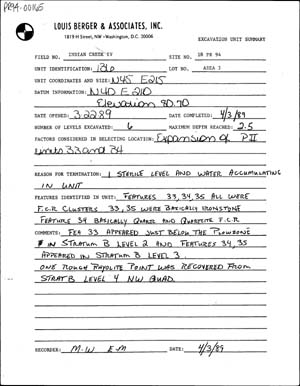 PR94-00165
LOUIS BERGER & ASSOCIATES, INC.
1819 H Street, NW • Washington, D.C. 20006
EXCAVATION UNIT SUMMARY
FIELD NO. INDIAN CREEK V SITE NO. 18 PR 94
UNIT IDENTIFICATION: LOT NO. AREA 3
UNIT COORDINATES AND SIZE: N45 E215
DATUM INFORMATION: N40 E210
Elevation 80.70
DATE OPENED: 3/22/89 DATE COMPLETED: 4/3/89
NUMBER OF LEVELS EXCAVATED: 6 MAXIMUM DEPTH REACHED: 2.5
FACTORS CONSIDERED IN SELECTING LOCATION: Expansion of P II
units 33 and 34
REASON FOR TERMINATION: 1 STERILE LEVEL AND WATER ACCUMULATING
IN UNIT
FEATURES IDENTIFIED IN UNIT: FEATURES 33, 34, 35 ALL WERE
F.C.R CLUSTERS 33, 35 WERE BASICALLY IRONSTONE
FEATURE 34 BASICALLY QUARTZ AND QUARTZITE F.C.R
COMMENTS: FEA 33 APPEARED JUST BELOW THE PLOWZONE
IN STRATUM B LEVEL 2 AND FEATURES 34, 35
APPEARED IN STRATUM B LEVEL 3.
ONE ROUGH RHYOLITE POINT WAS RECOVERED FROM
STRAT B LEVEL 4 NW QUAD.
RECORDER: M.W E-M DATE: 4/3/89